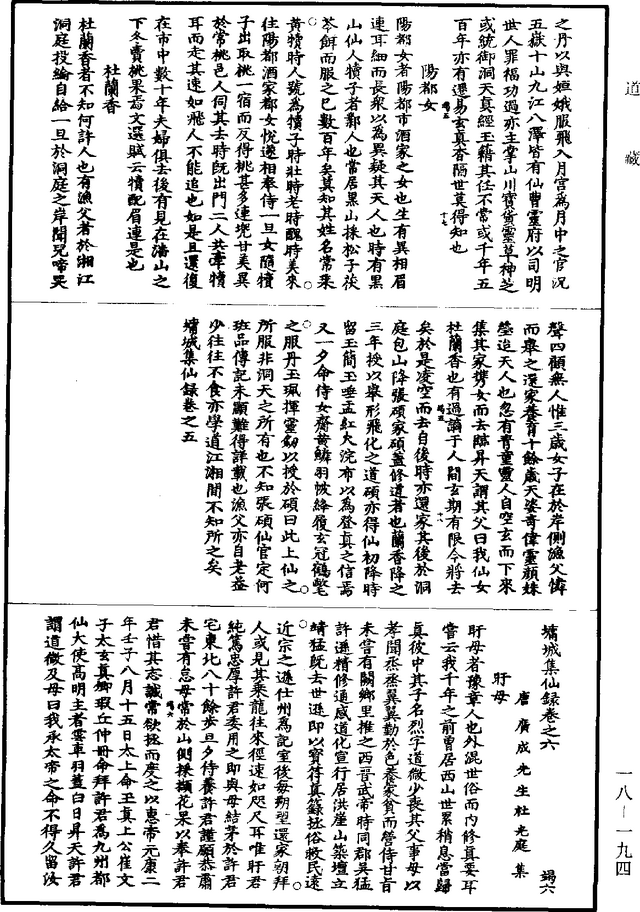 道藏
之丹以與姮娥服飛入月宮為月中之官況
五嶽十山九江八澤皆有仙曹靈府以司明
世人罪福功過亦主掌山川寶貨靈草神芝
或統御洞天真經玉籍其任不常或千年五
百年亦有遷易玄真杳隔世莫得知也
陽都女
陽都女者陽都市酒家之女也生有異相眉
連耳細而長衆以為異疑其天人也時有黑
山仙人犢子者鄴人也常居黑山採松子茯
苓餌而服之已數百年矣莫知其姓名常乘
黃犢時人號為犢子時壯時老時醜時美來
往陽都酒家都女悅遂相奉侍一旦女隨犢
子出取桃一宿而反得桃甚多連兜甘美異
於常桃邑人伺其去時既出門二人共牽犢
耳而走其速如飛人不能追也如是且還復
在市中數十年夫婦俱去後有見在潘山之
下冬賣桃果焉文選賦云犢配眉連是也
杜蘭香
杜蘭香者不知何許人也有漁父者於湘江
洞庭投綸自給一旦於洞庭之岸聞兒啼哭
聲四顧無人惟三歲女子在於岸側漁父憐
而舉之還家養育十餘歲天姿奇偉靈顏姝
瑩迨天人也忽有青童靈人自空玄而下來
集其家攜女而去臨昇天謂其父曰我仙女
杜蘭香也有過謫于人間玄期有限今將去
矣於是凌空而去自後時亦還家其後於洞
庭包山降張碩家碩蓋修道者也蘭香降之
三年授以舉形飛化之道碩亦得仙初降時
留玉簡玉唾盂紅火浣布以為登真之信焉
又一夕命侍女齎黃鱗羽帔絳履玄冠鶴氅
之服丹玉珮揮靈劒以授於碩曰此上仙之
所服非洞天之所有也不知張碩仙官定何
班品傳記未顯難得詳載也漁父亦自老益
少往往不食亦學道江湘間不知所之矣
墉城集仙錄卷之五
墉城集仙錄卷之六
唐廣成先生杜光庭集
盱母
盱母者豫章人也外混世俗而內修真要耳
嘗云我千年之前曾居西山世累稍息當歸
真彼中其子名烈字道微少喪其父事母以
孝聞烝烝翼翼勤於色養家貧而營侍甘旨
未嘗有闕鄉里推之西晉武帝時同郡吳猛
許遜精修通感道化宣行居洪崖山築壇立
靖猛既去世遜即以寶符真籙拯俗救民遠
近宗之遜仕州為記室後每朔望還家朝拜
人或見其乘龍往來徑速如咫尺耳唯盱君
純篤忠厚許君委用之即與母結茅於許君
宅東北八十餘步旦夕侍養許君謹願恭肅
未嘗有怠母常於山側採擷花果以奉許君
君惜其志誠常欲拯而度之以惠帝元康二
年壬子八月十五日太上命玉真上公崔文
子太玄真卿瑕丘仲冊命拜許君為九州都
仙大使高明主者雲車羽蓋白日昇天許君
謂道微及母曰我承太帝之命不得久留汝
一八－一九四